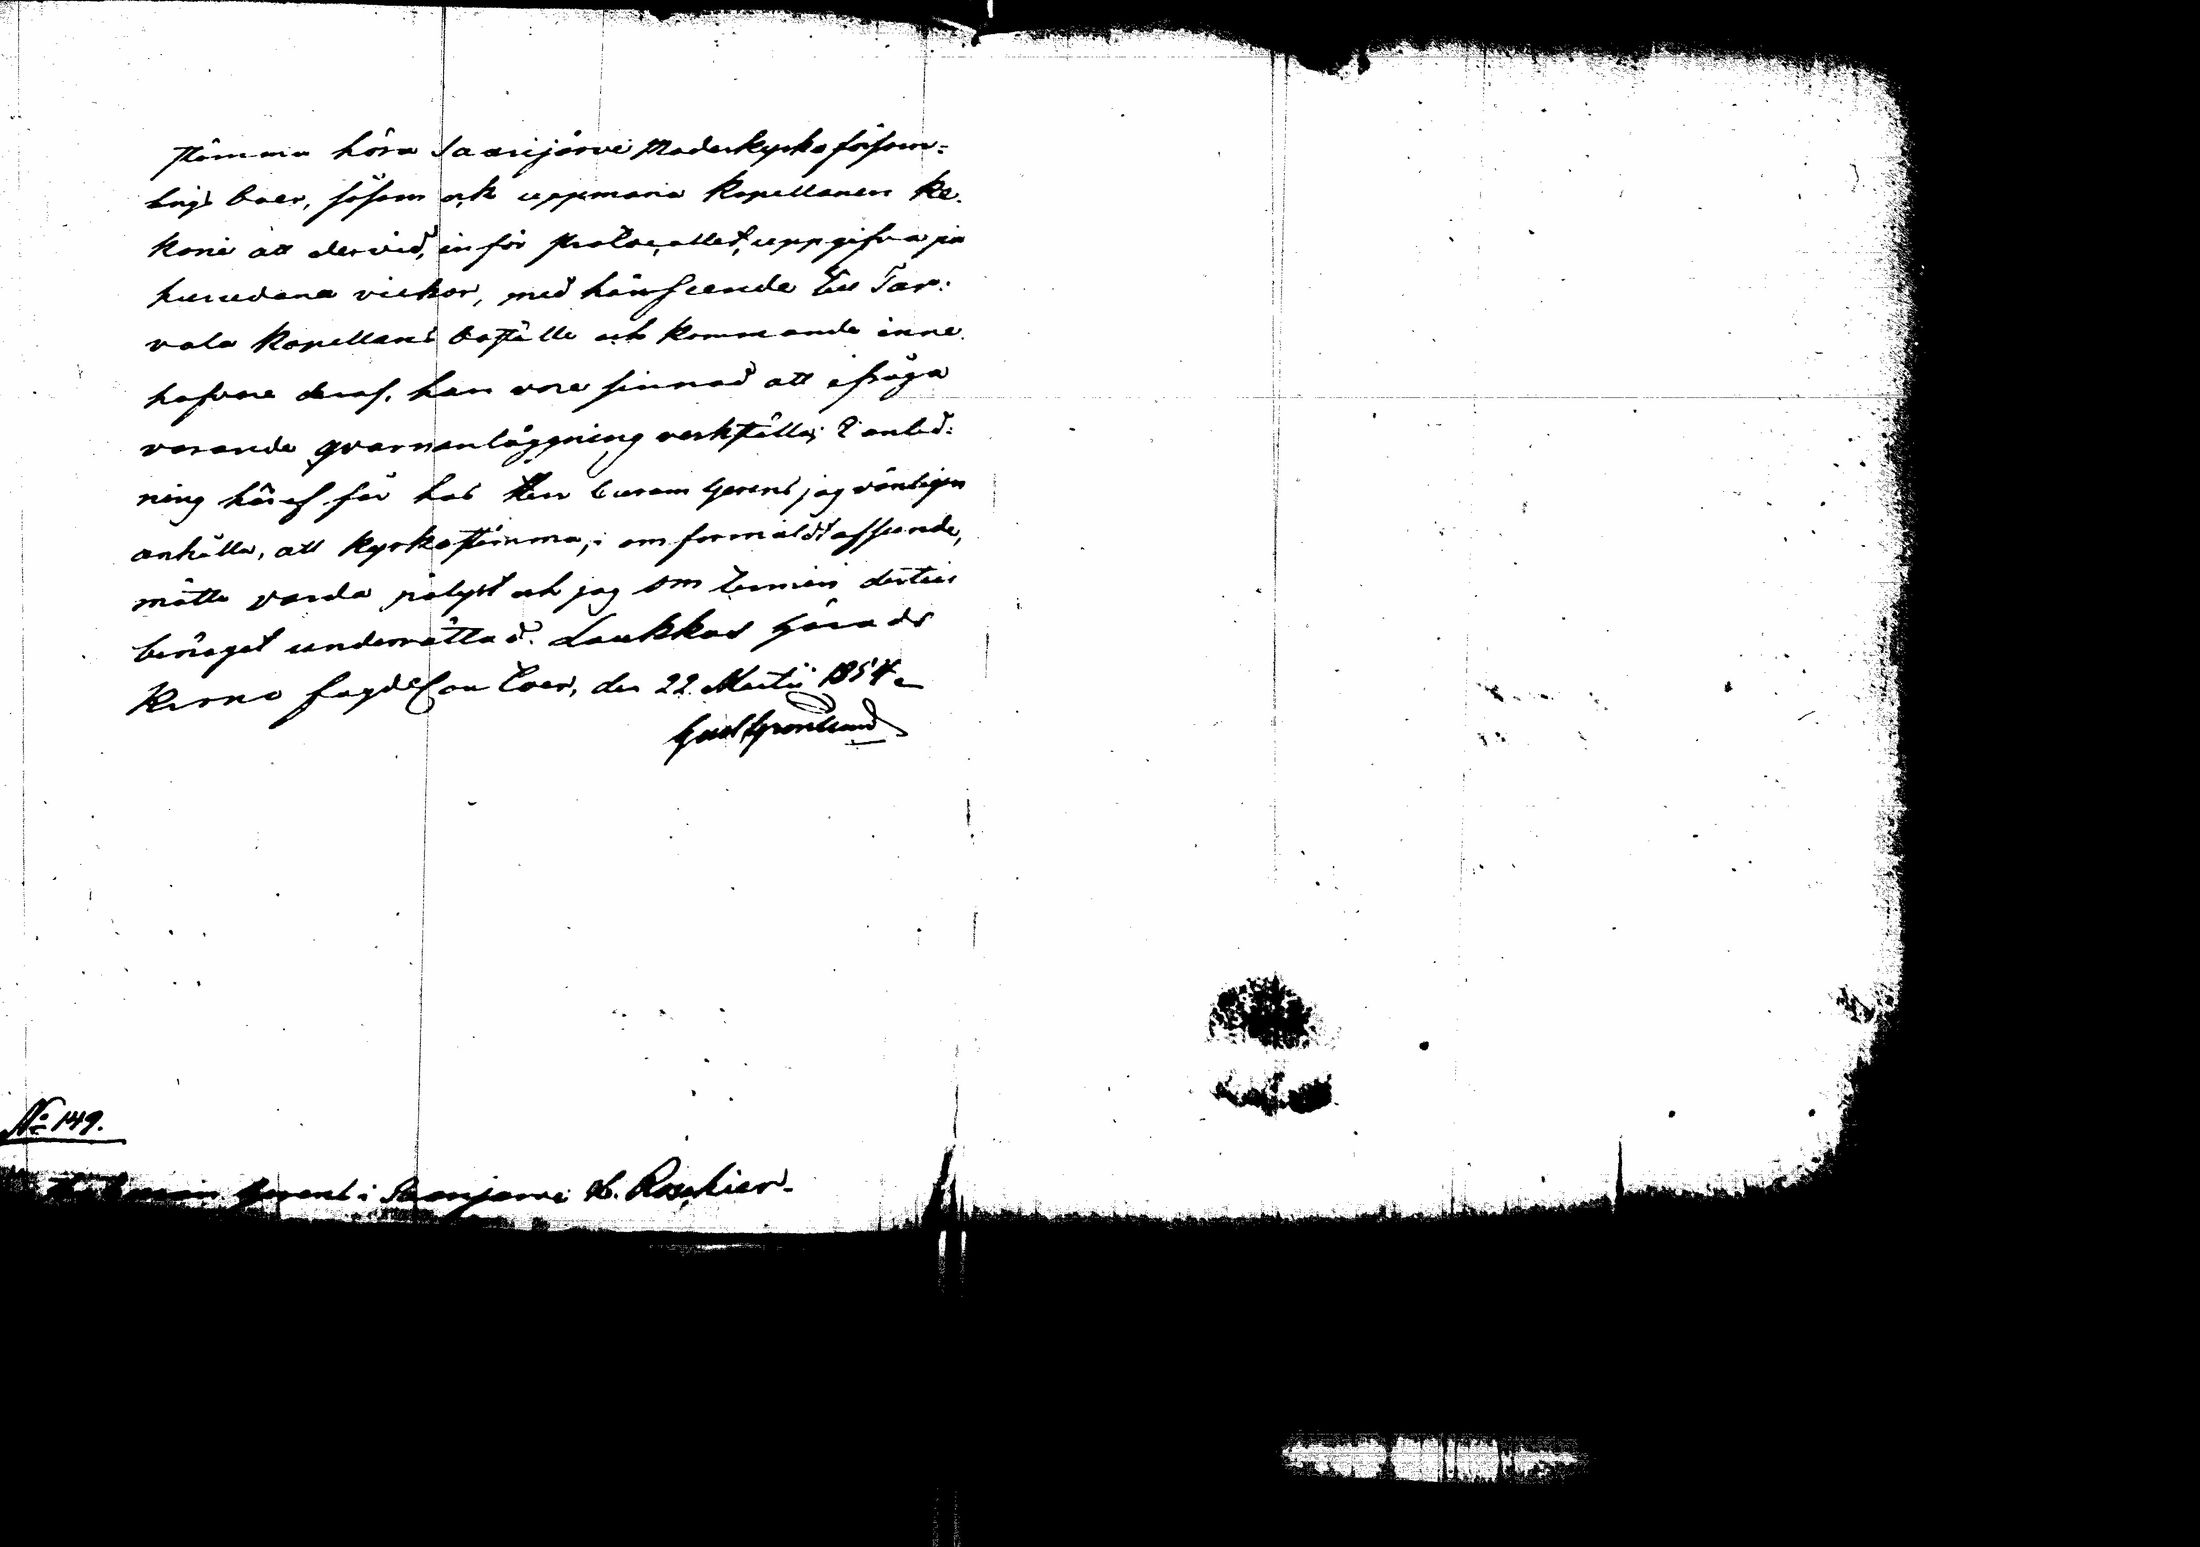 stämma höra Saarijärvi Moderkyrkoförsam=
lings boer, såsom ock uppmana Kapellanen Ke-
koni att dervid, inför protocollet, uppgifva på
hurudana vilkor, med hänseende till Tar-
vala Kapellans boställe och kommande inne-
hafvare deraf, han vore sinnad att ifråga
varande qvarnanläggning verkställa; I anled=
ning häraf får hos Herr Curam Gerens jag vänligen
anhålla, att Kyrkostämma, i omförmäldt afseende,
måtte varda pålyst och jag om termin dertill
benäget underrättad. Laukkas Härads
Krono Fogde Contoir, den 22 Martii 1854
Gust Grönlund
No 149.
Gerens i Saarijärvi Roschier